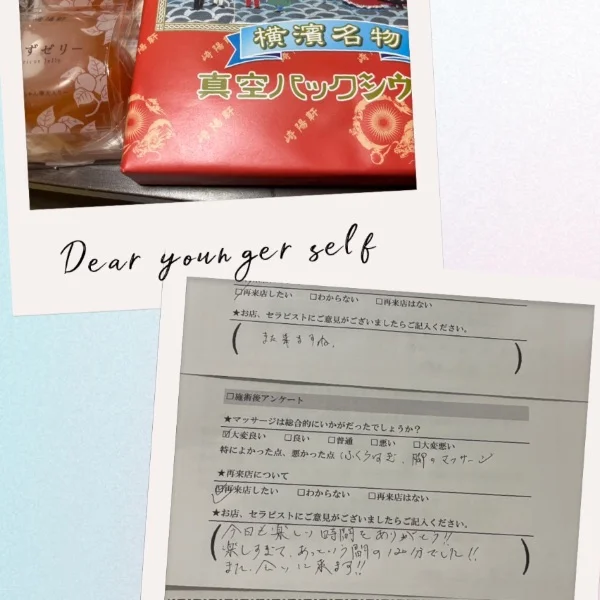 ずゼリー
横濱名物
真空パックシウ
崎陽軒
崎陽軒
Dear younger self
☑再来店したい □わからない □再来店はない
★お店、セラピストにご意見がございましたらご記入ください。
( また来ますね。 )
□施術後アンケート
★マッサージは総合的にいかがだったでしょうか？
☑大変良い □良い □普通 □悪い □大変悪い
特によかった点、悪かった点 ふくらはぎ、脚のマッサージ
★再来店について
☑再来店したい □わからない □再来店はない
★お店、セラピストにご意見がございましたらご記入ください。
( 今日も楽しい時間をありがとう!!
楽しすぎて、あっという間の120分でした!!
また、会いに来ます!! )